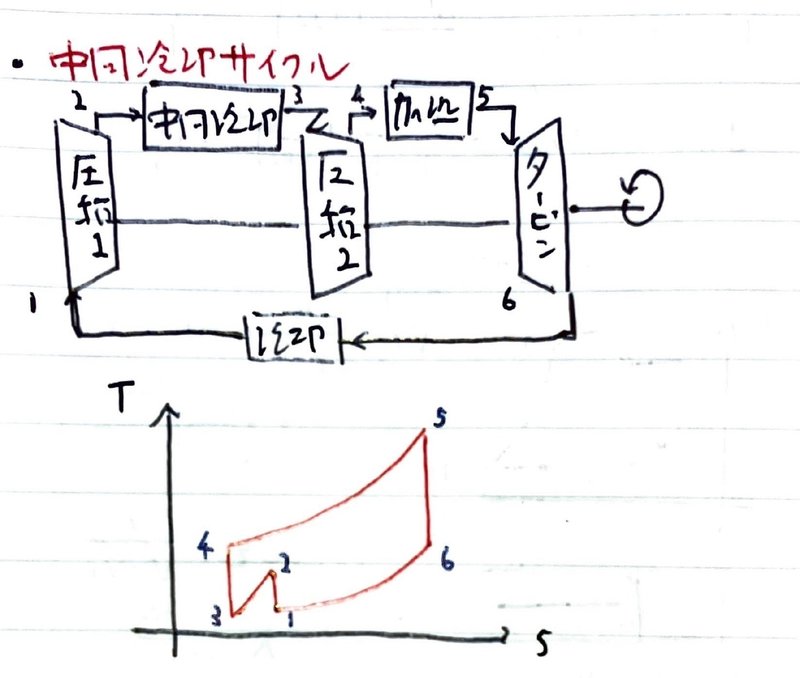 ・中間冷却サイクル
2 3 4 5
中間冷却 加熱
圧縮1 圧縮2 タービン
1 6
冷却
T
5
4
2 6
3 1
S